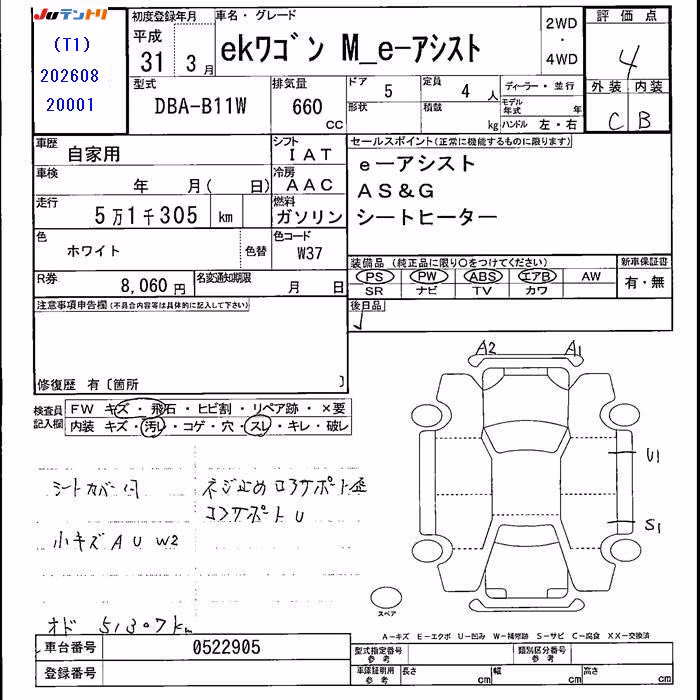 Juテントリ
(T1)
202608
20001
初度登録年月
平成
31 3月
車名・グレード
ekワゴン M_e-アシスト
2WD
・
4WD
評価点
4
外装 内装
C B
型式
DBA-B11W
排気量
660
cc
ドア 5
定員 4人
形状
積載 kg
ディーラー・並行
モデル年式 年
ハンドル 左・右
車歴
自家用
シフト
IAT
車検
年 月( 日)
冷房
AAC
走行
5万1千305 km
燃料
ガソリン
色
ホワイト
色替
色コード
W37
R券
8,060円
名変通知期限
月 日
セールスポイント(正常に機能するものに限ります)
e-アシスト
AS&G
シートヒーター
装備品(純正品に限り○をつけてください)
新車保証書
PS PW ABS エアB AW
SR ナビ TV カワ
有・無
後日品
注意事項申告欄(不具合内容等は具体的に記入して下さい)
修復歴 有〔箇所 〕
検査員記入欄
FW キズ・飛石・ヒビ割・リペア跡・×要
内装 キズ・汚し・コゲ・穴・スレ・キレ・破し
シートカバー付
ネジ止め コアサポート歪
コアサポートU
小キズ A U W2
オド 51307km
A2 A1
U1
S1
スペア
A-キズ E-エクボ U-凹み W-補修跡 S-サビ C-腐食 XX-交換済
車台番号
0522905
登録番号
型式指定番号
参考
類別区分番号
参考
車庫証明用
参考
長さ cm
幅 cm
高さ cm